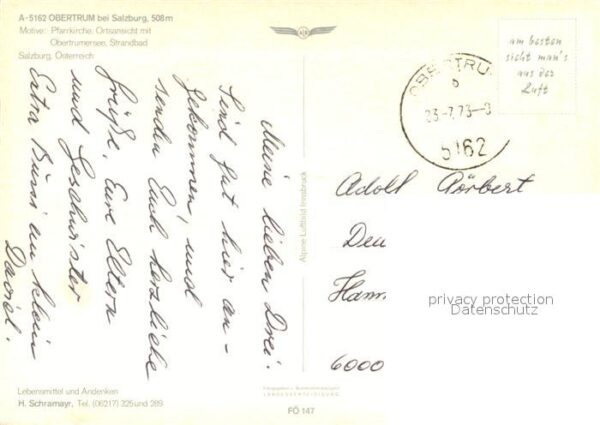 A-5162 OBERTRUM bei Salzburg, 508 m
Motive: Pfarrkirche, Ortsansicht mit
Obertrumersee, Strandbad
Salzburg, Österreich
am besten
sieht man's
aus der
Luft
OBERTRUM
b
23.-7.73-8
5162
Meine lieben Drei!
Sind gut hier an-
gekommen, und
senden Euch herzliche
Grüße, Eure Eltern
und Geschwister
Extra Bussi an klein
Daniel.
Alpine Luftbild Innsbruck
Adolf Körbert
Deu
Hann
6000
privacy protection
Datenschutz
Lebensmittel und Andenken
H. Schramayr, Tel. (06217) 325 und 289
LANDESVERTEIDIGUNG
FÖ 147